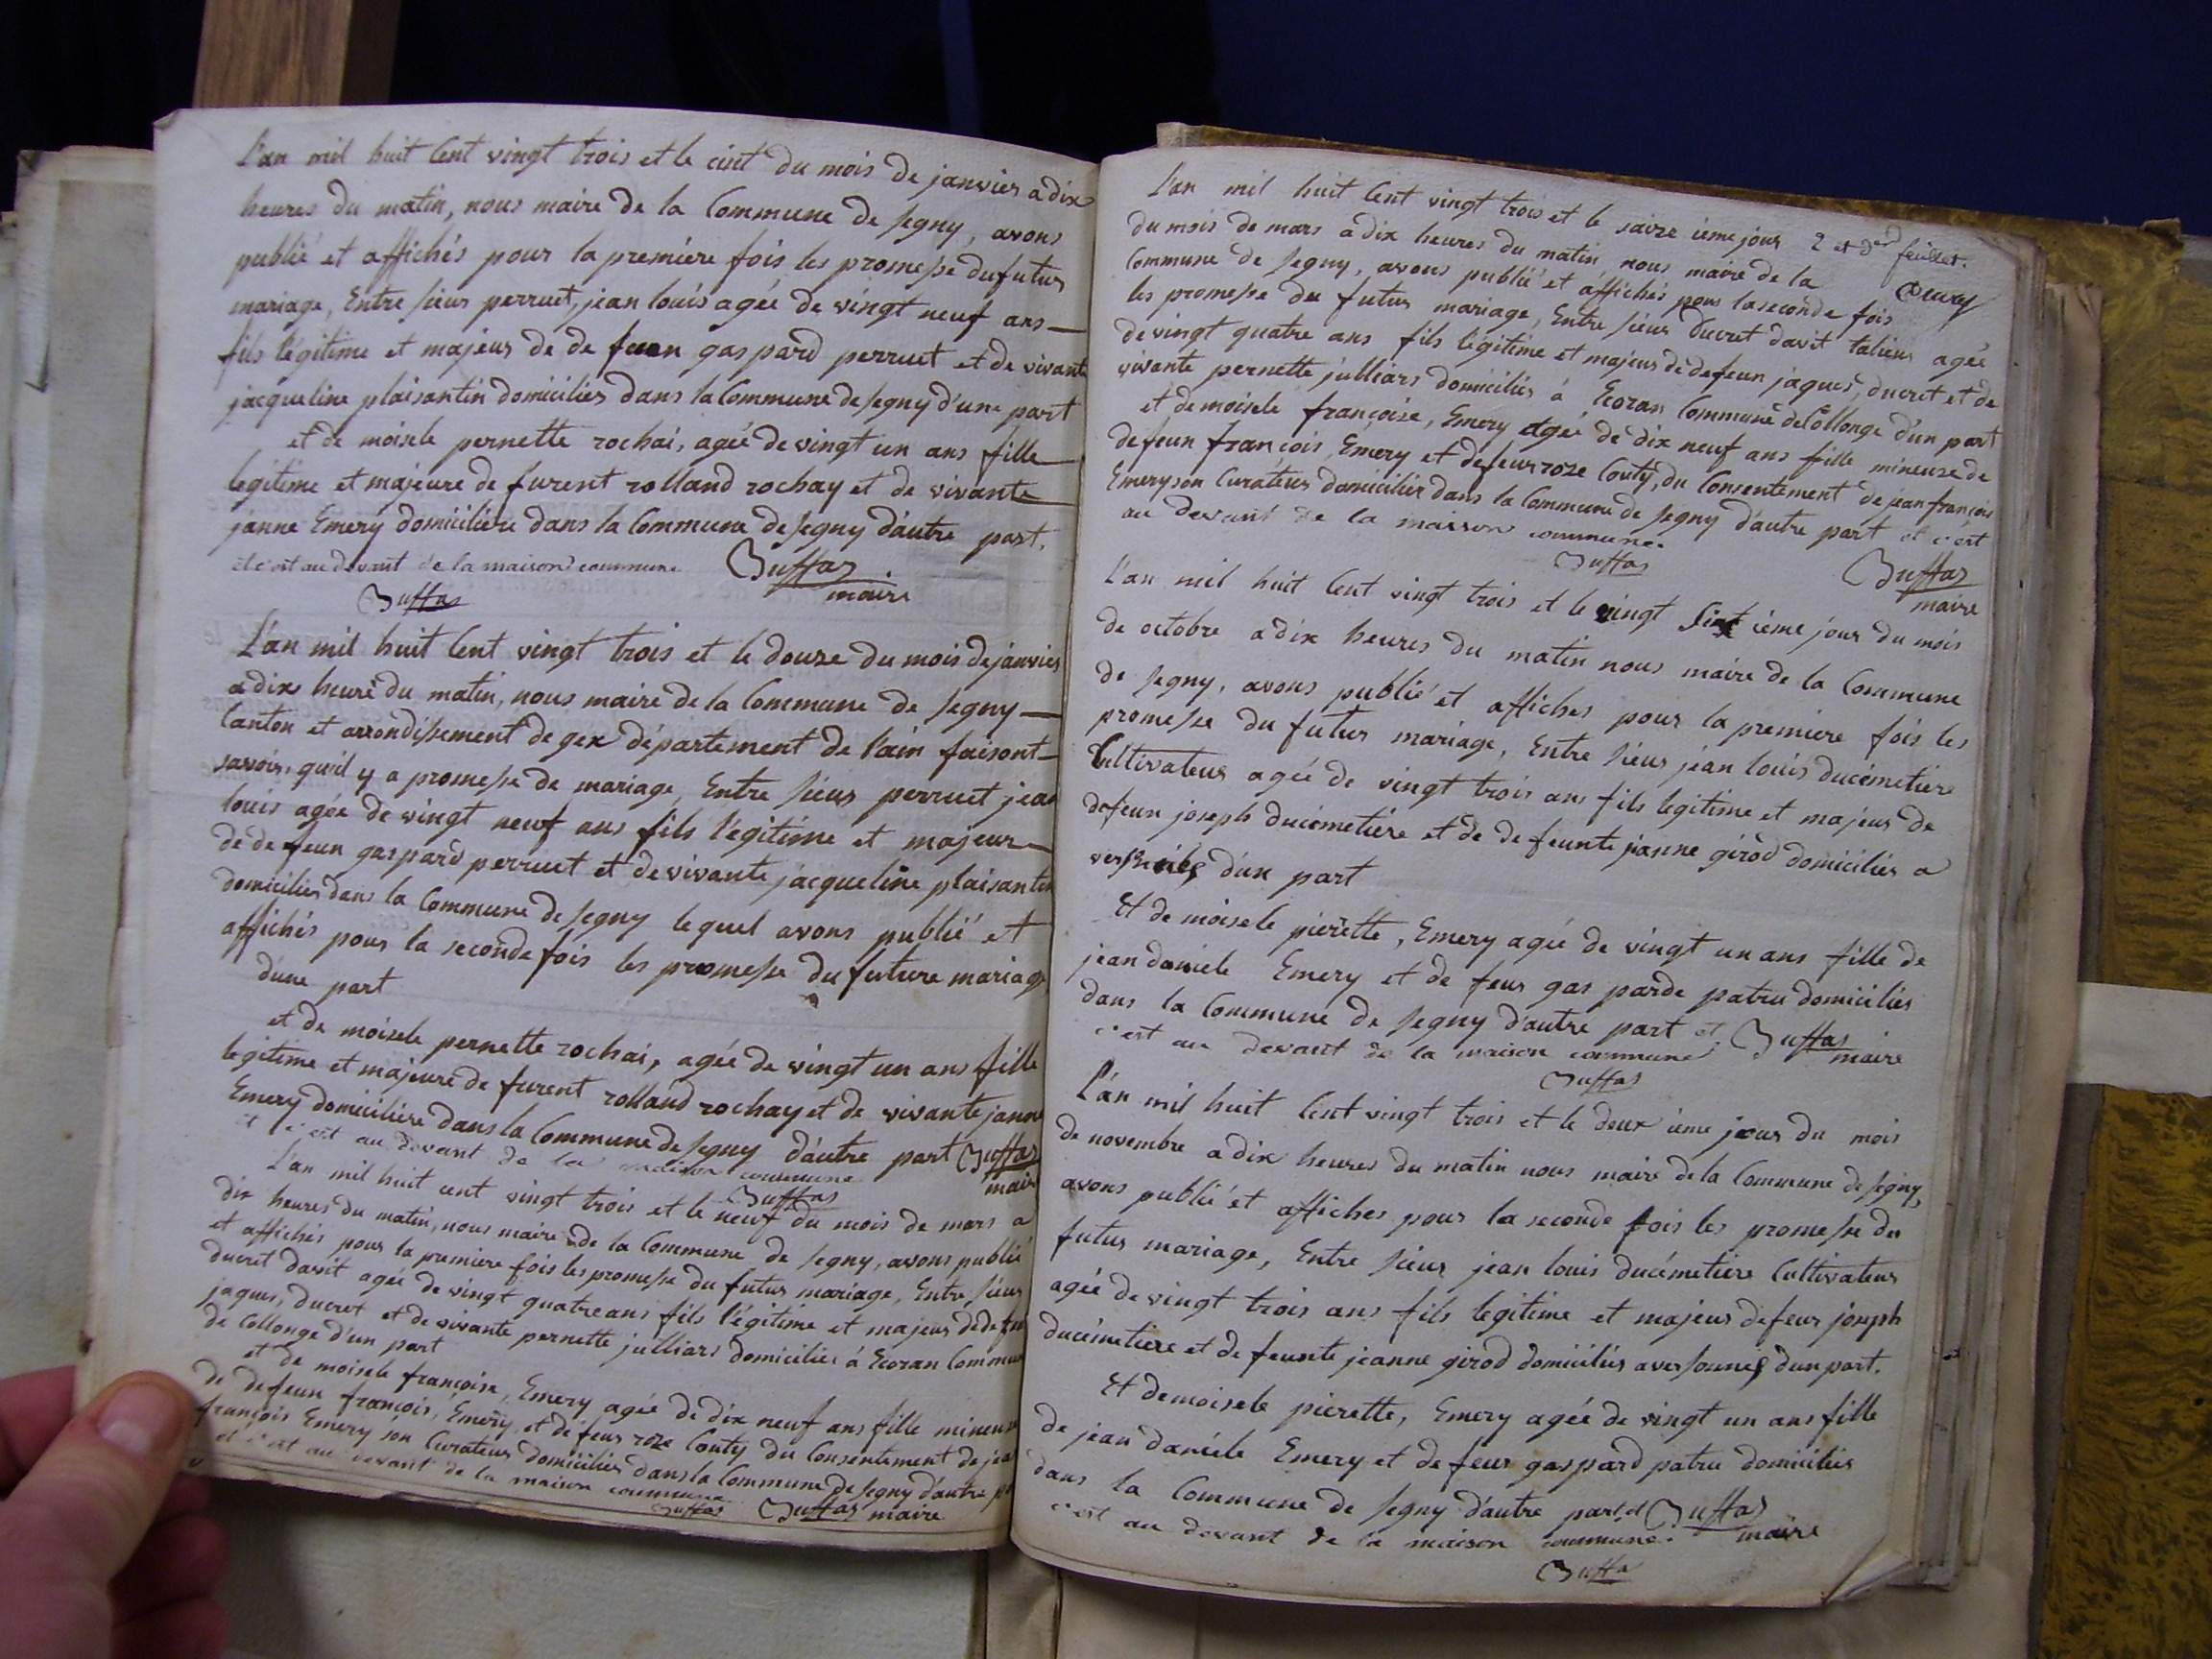 L'an mil huit Cent vingt trois et le cint du mois de janvier a dix
heures du matin, nous maire de la Commune de Segny, avons
publié et affichés pour la premiére fois les promesse du futur
mariage, Entre sieur perruet, jean louis agée de vingt neuf ans
fils légitime et majeur de de feun gaspard perruet et de vivante
jacqueline plaisantin domicilier dans la Commune de Segny d'une part
et de moisele pernette rochai, agée de vingt un ans fille
légitime et majeure de furent rolland rochay et de vivante
janne Emery domiciliére dans la Commune de Segny d'autre part.
et c'est au devant de la maison commune Buffas
maire
Buffas
L'an mil huit Cent vingt trois et le douze du mois de janvier
a dix heure du matin, nous maire de la Commune de Segny
Canton et arrondissement de gex département de l'ain faisont
savoir, qu'il y a promesse de mariage, Entre sieur perruet jean
louis agée de vingt neuf ans fils légitime et majeur
de de feun gaspard perruet et de vivante jacqueline plaisantin
domicilier dans la Commune de Segny le quel avons publié et
affichés pour la seconde fois les promesse du future mariage
d'une part
et de moisele pernette rochai, agée de vingt un ans fille
legitime et majeure de furent rolland rochay et de vivante janne
Emery domiciliére dans la Commune de Segny d'autre part Buffas
et c'est au devant de la maison commune maire
Buffas
L'an mil huit cent vingt trois et le neuf du mois de mars a
dix heures du matin, nous maire de la Commune de Segny, avons publié
et affichés pour la premiere fois les promesse du futur mariage, Entre sieur
ducret davit agée de vingt quatre ans fils l'égitime et majeur de de feun
jaques, ducret et de vivante pernette julliard domicilier á Ecoran Commune
de Collonge d'un part
et de moisele françoise, Emery agée de dix neuf ans fille mineure
de defeun françois, Emery et de feue roze Couty du Consentement de jean
françois Emery son Curateur domicilier dans la Commune de Segny d'autre part
et c'est au devant de la maison commune
Buffas Buffas maire
2 et der feuillet.
L'an mil huit Cent vingt trois et le saize ieme jour
du mois de mars a dix heures du matin nous maire de la
Commune de Segny, avons publié et affichés pour la seconde fois
les promesse du futur mariage, Entre sieur Ducret davit agée
de vingt quatre ans fils légitime et majeur de defeun jaques, ducret et de
vivante pernette julliard domicilier á Ecoran Commune de Collonge d'un part
et demoisele françoise, Emery agée de dix neuf ans fille mineure de
defeun françois, Emery et defeue roze Couty, du Consentement de jean françois
Emery son Curateur domicilier dans la Commune de Segny d'autre part et c'est
au devant de la maison commune.
Buffas Buffas
maire
L'an mil huit Cent vingt trois et le vingt ième jour du mois
de octobre a dix heures du matin nous maire de la Commune
de Segny, avons publié et affiches pour la premiere fois les
promesse du futur mariage, Entre sieur jean louis ducémetiére
Cultivateur agée de vingt trois ans fils legitime et majeur de
defeun joseph ducémetiére et de de feunte janne girod domicilier a
d'un part
Et de moisele pierette, Emery agée de vingt un ans fille de
jean daniele Emery et de feue gas parde patru domicilier
dans la Commune de Segny d'autre part et Buffas
c'est au devant de la maison commune maire
Buffas
L'an mil huit Cent vingt trois et le deux ieme jour du mois
de novembre a dix heures du matin nous maire de la Commune de Segny,
avons publié et affiches pour la seconde fois les promesse du
futur mariage, Entre sieur jean louis ducémetiére Cultivateur
agée de vingt trois ans fils legitime et majeur defeur joseph
ducémetiere et de feunte jeanne girod domicilier a d'un part.
Et demoisele pierette, Emery agée de vingt un ans fille
de jean daniele Emery et de feue gaspard patru domicilier
dans la Commune de Segny d'autre part, et Buffas
c'est au devant de la maison commune. maire
Buffas